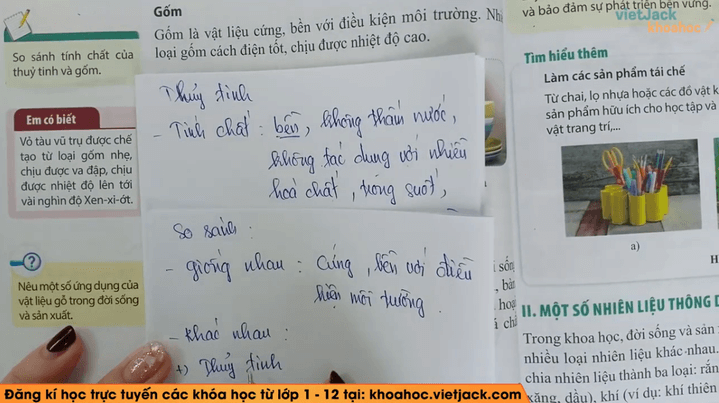 So sánh tính chất của
thuỷ tinh và gốm.
Em có biết
Vỏ tàu vũ trụ được chế
tạo từ loại gốm nhẹ,
chịu được va đập, chịu
được nhiệt độ lên tới
vài nghìn độ Xen-xi-ớt.
Nêu một số ứng dụng của
vật liệu gỗ trong đời sống
và sản xuất.
Gốm
Gốm là vật liệu cứng, bền với điều kiện môi trường.
loại gốm cách điện tốt, chịu được nhiệt độ cao.
Thuỷ tinh
- Tính chất : bền, không thấm nước,
không tác dụng với nhiều
hoá chất, trong suốt,
So sánh :
- giống nhau : Cứng, bền với điều
kiện môi trường.
- Khác nhau :
+) Thuỷ tinh
và bảo đảm sự phát triển bền vững.
vietJack
khoahoc
Tìm hiểu thêm
Làm các sản phẩm tái chế
Từ chai, lọ nhựa hoặc các đồ vật
sản phẩm hữu ích cho học tập và
vật trang trí,...
a)
II. MỘT SỐ NHIÊN LIỆU THÔNG
Trong khoa học, đời sống và sản
nhiều loại nhiên liệu khác nhau.
chia nhiên liệu thành ba loại: rắn
xăng, dầu), khí (ví dụ: khí thiên
Đăng kí học trực tuyến các khóa học từ lớp 1 - 12 tại: khoahoc.vietjack.com